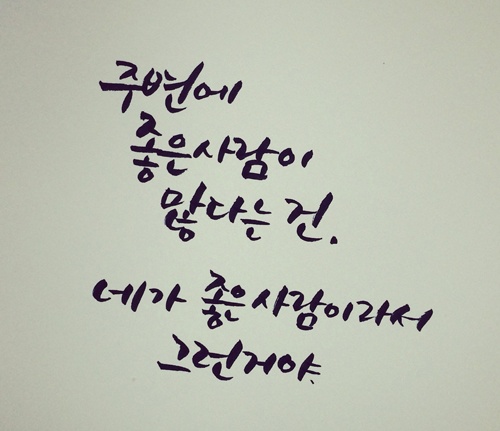 주변에
좋은사람이
많다는건.
네가 좋은사람이라서
그런거야.